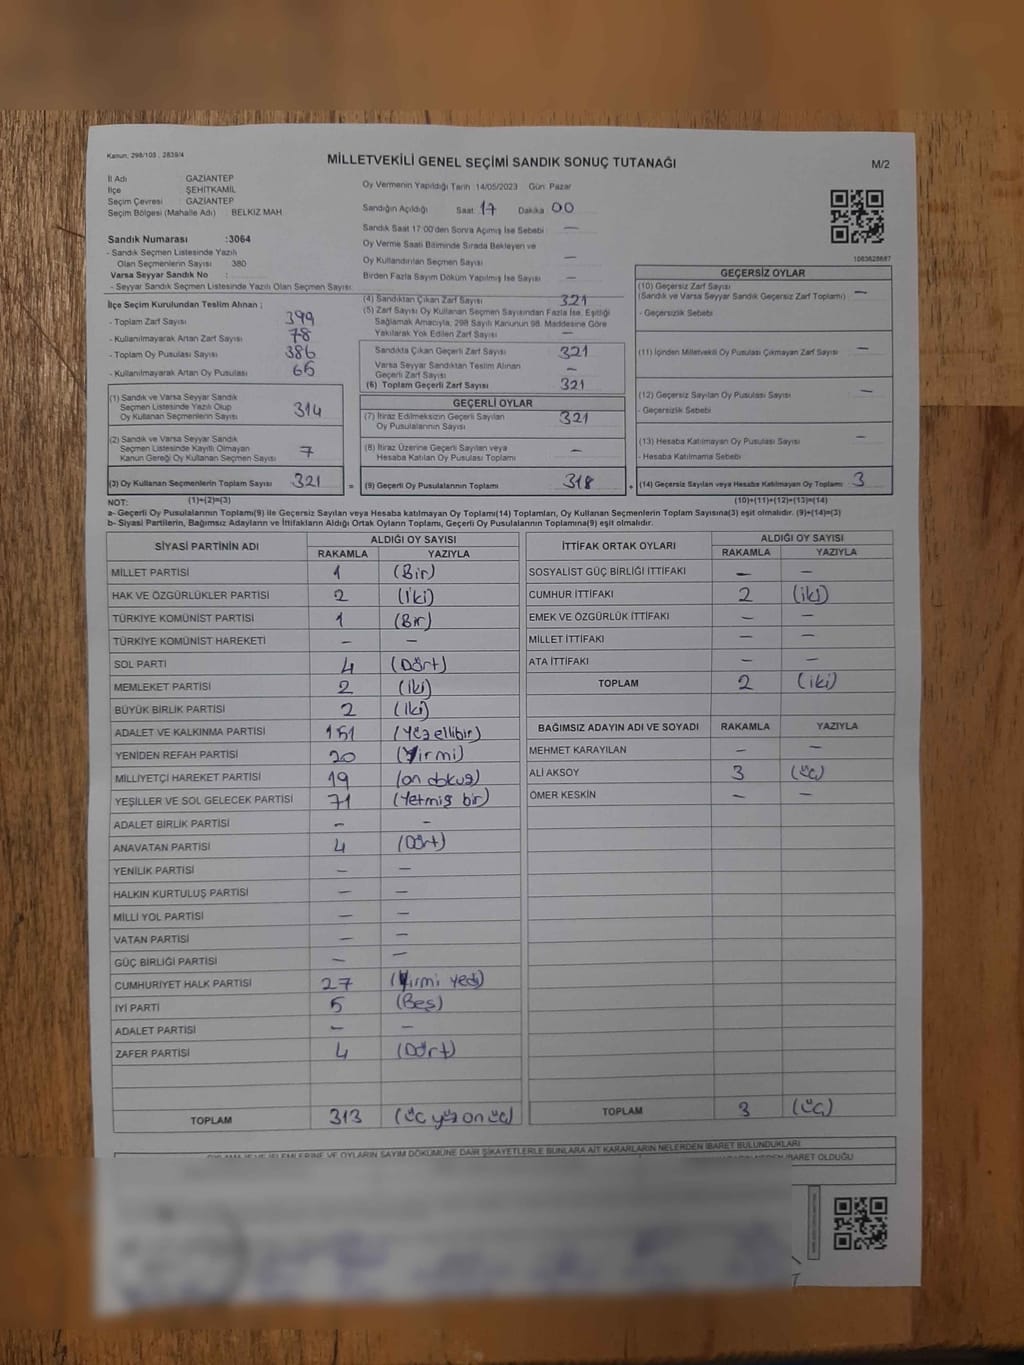 Kanun: 298/103 , 2839/4
MİLLETVEKİLİ GENEL SEÇİMİ SANDIK SONUÇ TUTANAĞI
M/2
İl Adı GAZİANTEP
İlçe ŞEHİTKAMİL
Seçim Çevresi : GAZİANTEP
Seçim Bölgesi (Mahalle Adı) : BELKIZ MAH.
Sandık Numarası :3064
- Sandık Seçmen Listesinde Yazılı
Olan Seçmenlerin Sayısı 380
Varsa Seyyar Sandık No :
- Seyyar Sandık Seçmen Listesinde Yazılı Olan Seçmen Sayısı:
Oy Vermenin Yapıldığı Tarih 14/05/2023 Gün: Pazar
Sandığın Açıldığı Saat: 17 Dakika 00
Sandık Saat 17:00'den Sonra Açımış İse Sebebi : —
Oy Verme Saati Bitiminde Sırada Bekleyen ve
Oy Kullandırılan Seçmen Sayısı —
Birden Fazla Sayım Döküm Yapılmış İse Sayısı —
1083628687
İlçe Seçim Kurulundan Teslim Alınan ;
- Toplam Zarf Sayısı 399
- Kullanılmayarak Artan Zarf Sayısı 78
- Toplam Oy Pusulası Sayısı 386
- Kullanılmayarak Artan Oy Pusulası 65
(1) Sandık ve Varsa Seyyar Sandık
Seçmen Listesinde Yazılı Olup
Oy Kullanan Seçmenlerin Sayısı 314
(2) Sandık ve Varsa Seyyar Sandık
Seçmen Listesinde Kayıtlı Olmayan
Kanun Gereği Oy Kullanan Seçmen Sayısı 7
(3) Oy Kullanan Seçmenlerin Toplam Sayısı 321
(4) Sandıktan Çıkan Zarf Sayısı 321
(5) Zarf Sayısı Oy Kullanan Seçmen Sayısından Fazla İse, Eşitliği
Sağlamak Amacıyla, 298 Sayılı Kanunun 98. Maddesine Göre
Yakılarak Yok Edilen Zarf Sayısı —
Sandıkta Çıkan Geçerli Zarf Sayısı 321
Varsa Seyyar Sandıktan Teslim Alınan
Geçerli Zarf Sayısı —
(6) Toplam Geçerli Zarf Sayısı 321
GEÇERLİ OYLAR
(7) İtiraz Edilmeksizin Geçerli Sayılan
Oy Pusulalarının Sayısı 321
(8) İtiraz Üzerine Geçerli Sayılan veya
Hesaba Katılan Oy Pusulası Toplamı —
= (9) Geçerli Oy Pusulalarının Toplamı 318
GEÇERSİZ OYLAR
(10) Geçersiz Zarf Sayısı
(Sandık ve Varsa Seyyar Sandık Geçersiz Zarf Toplamı) —
- Geçersizlik Sebebi
(11) İçinden Milletvekili Oy Pusulası Çıkmayan Zarf Sayısı —
(12) Geçersiz Sayılan Oy Pusulası Sayısı —
- Geçersizlik Sebebi
(13) Hesaba Katılmayan Oy Pusulası Sayısı —
- Hesaba Katılmama Sebebi
+ (14) Geçersiz Sayılan veya Hesaba Katılmayan Oy Toplamı 3
NOT: (1)+(2)=(3) (10)+(11)+(12)+(13)=(14)
a- Geçerli Oy Pusulalarının Toplamı(9) ile Geçersiz Sayılan veya Hesaba katılmayan Oy Toplamı(14) Toplamları, Oy Kullanan Seçmenlerin Toplam Sayısına(3) eşit olmalıdır. (9)+(14)=(3)
b- Siyasi Partilerin, Bağımsız Adayların ve İttifakların Aldığı Ortak Oyların Toplamı, Geçerli Oy Pusulalarının Toplamına(9) eşit olmalıdır.
SİYASİ PARTİNİN ADI ALDIĞI OY SAYISI
RAKAMLA YAZIYLA
MİLLET PARTİSİ 1 (Bir)
HAK VE ÖZGÜRLÜKLER PARTİSİ 2 (İki)
TÜRKİYE KOMÜNİST PARTİSİ 1 (Bir)
TÜRKİYE KOMÜNİST HAREKETİ — —
SOL PARTİ 4 (Dört)
MEMLEKET PARTİSİ 2 (İki)
BÜYÜK BİRLİK PARTİSİ 2 (İki)
ADALET VE KALKINMA PARTİSİ 151 (Yüzellibir)
YENİDEN REFAH PARTİSİ 20 (Yirmi)
MİLLİYETÇİ HAREKET PARTİSİ 19 (on dokuz)
YEŞİLLER VE SOL GELECEK PARTİSİ 71 (Yetmiş bir)
ADALET BİRLİK PARTİSİ — —
ANAVATAN PARTİSİ 4 (Dört)
YENİLİK PARTİSİ — —
HALKIN KURTULUŞ PARTİSİ — —
MİLLİ YOL PARTİSİ — —
VATAN PARTİSİ — —
GÜÇ BİRLİĞİ PARTİSİ — —
CUMHURİYET HALK PARTİSİ 27 (Yirmi yedi)
İYİ PARTİ 5 (Beş)
ADALET PARTİSİ — —
ZAFER PARTİSİ 4 (Dört)
TOPLAM 313 (üç yüz on üç)
İTTİFAK ORTAK OYLARI ALDIĞI OY SAYISI
RAKAMLA YAZIYLA
SOSYALİST GÜÇ BİRLİĞİ İTTİFAKI — —
CUMHUR İTTİFAKI 2 (iki)
EMEK VE ÖZGÜRLÜK İTTİFAKI — —
MİLLET İTTİFAKI — —
ATA İTTİFAKI — —
TOPLAM 2 (iki)
BAĞIMSIZ ADAYIN ADI VE SOYADI RAKAMLA YAZIYLA
MEHMET KARAYILAN — —
ALİ AKSOY 3 (üç)
ÖMER KESKİN — —
TOPLAM 3 (üç)
OYLAMA İŞ VE İŞLEMLERİNE VE OYLARIN SAYIM DÖKÜMÜNE DAİR ŞİKAYETLERLE BUNLARA AİT KARARLARIN NELERDEN İBARET BULUNDUKLARI
İBARET OLDUĞU